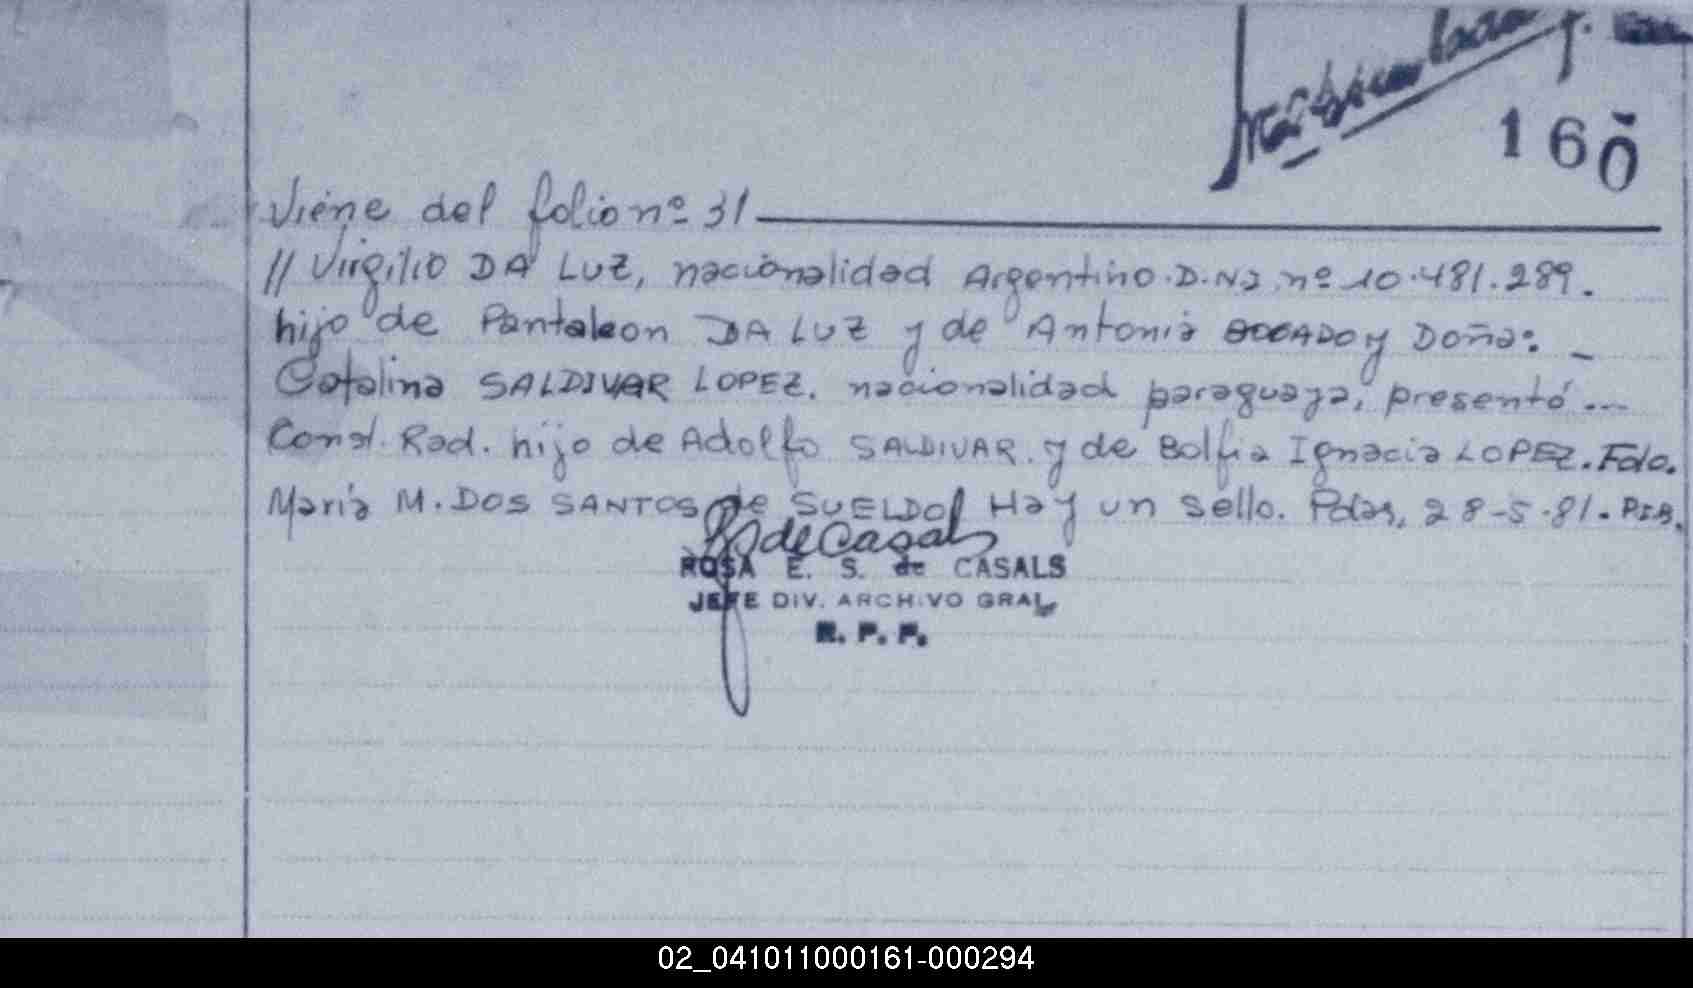 160
Viene del folio nº 31
// Virgilio DA LUZ, nacionalidad Argentino. D.NI nº 10.481.289.
hijo de Pantaleon DA LUZ y de Antonia y Doña: _
Catalina SALDIVAR LOPEZ. nacionalidad paraguaya, presentó...
Const. Rad. hijo de Adolfo SALDIVAR. y de Bolfia Ignacia LOPEZ. Fdo.
María M. DOS SANTOS de SUELDO/ Hay un sello. Pdas, 28-5-81.
de Casals
ROSA E. S. de CASALS
JEFE DIV. ARCHIVO GRAL
R. P. P.
02_041011000161-000294